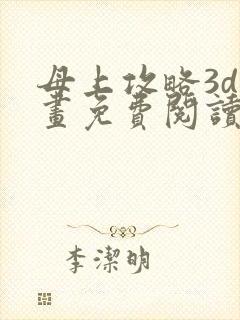 母上攻略3d
畫免費閱讀
李潔明